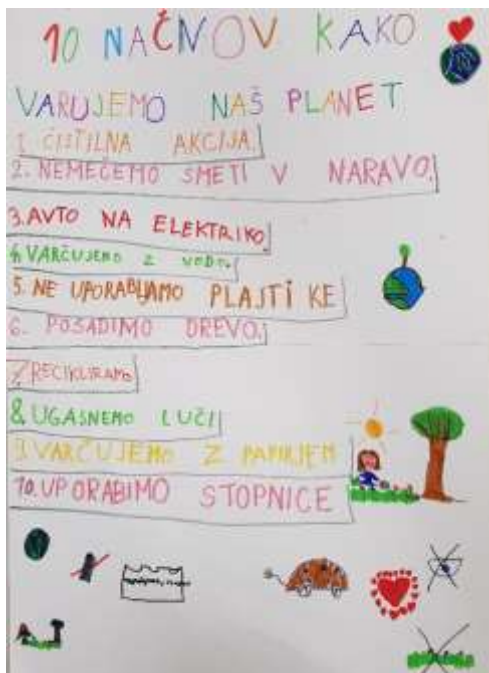 10 NAČNOV KAKO
VARUJEMO NAŠ PLANET
1. ČISTILNA AKCIJA.
2. NEMEČEMO SMETI V NARAVO.
3. AVTO NA ELEKTRIKO.
4. VARČUJEMO Z VODO.
5. NE UPORABLJAMO PLAJTIKE
6. POSADIMO DREVO.
7. RECIKLIRAMO
8. UGASNEMO LUČI
9. VARČUJEMO Z PAPIRJEM
10. UPORABIMO STOPNICE